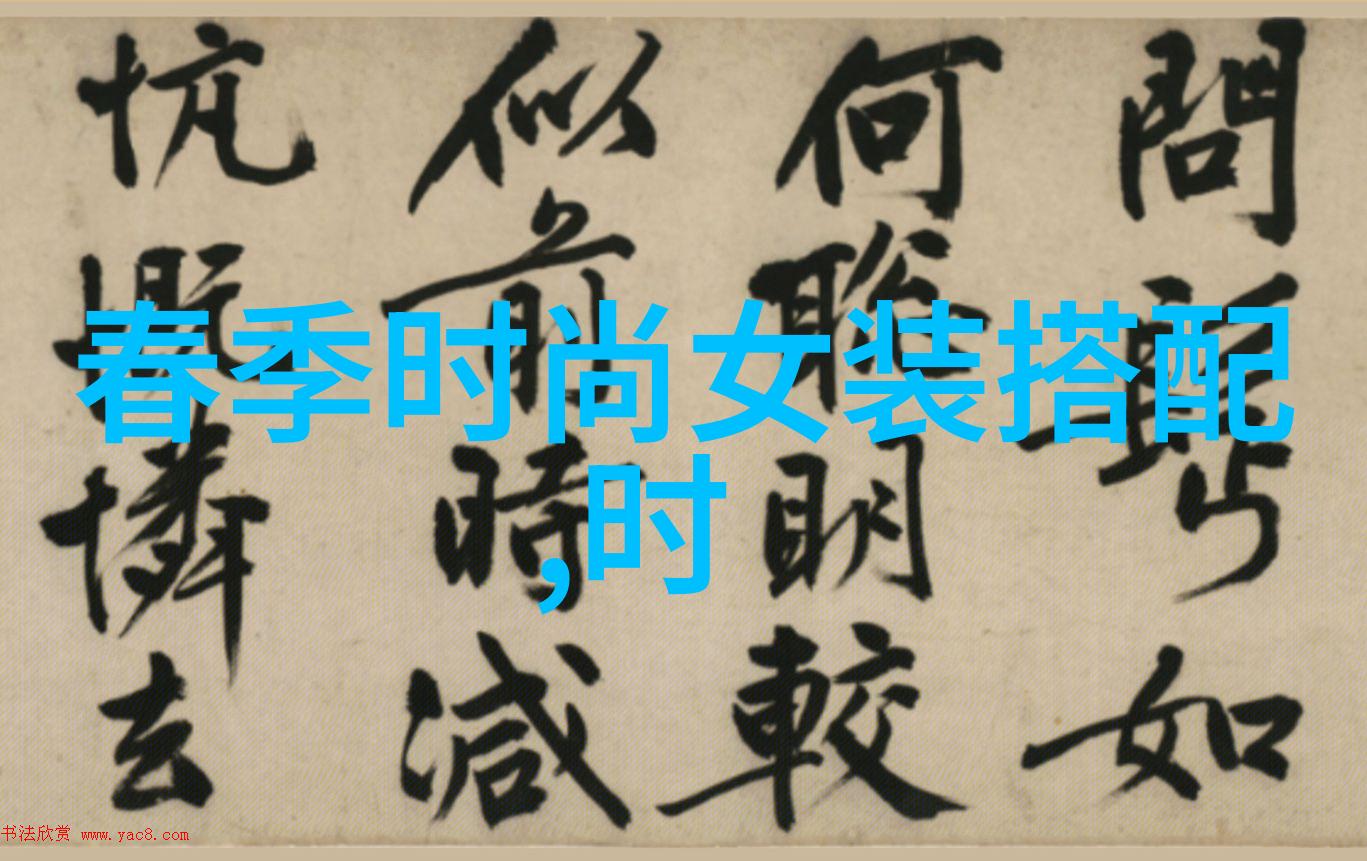 春季时尚女装搭配
,时
問
如
何聰明較
似前時減
忼慨憐去
书法欣赏 www.yac8.com